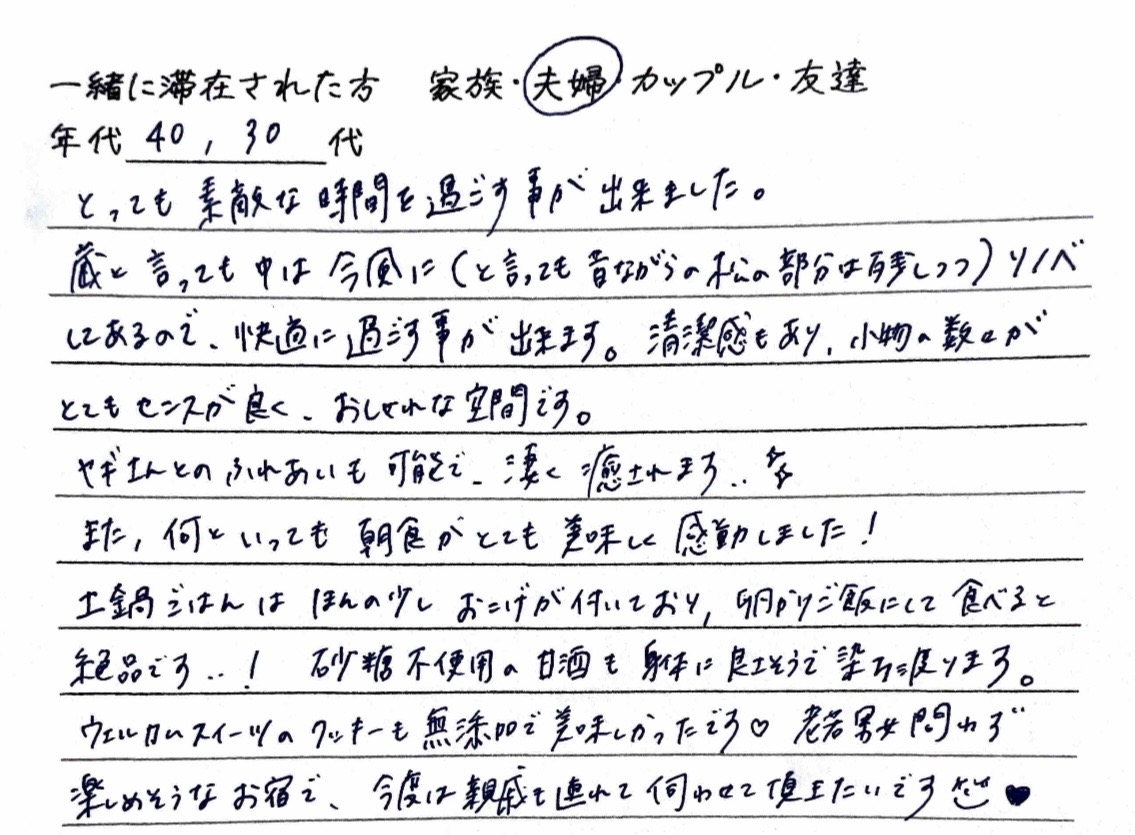 一緒に滞在された方 家族・夫婦・カップル・友達
年代 40, 30 代
とっても素敵な時間を過ごす事が出来ました。
蔵と言っても中は今風に(と言っても昔ながらの松の部分は残しつつ)リノベ
してあるので、快適に過ごす事が出来ます。清潔感もあり、小物の数々が
とてもセンスが良く、おしゃれな空間です。
ヤギさんとのふれあいも可能で、凄く癒されます..
また,何といっても朝食がとても美味しく感動しました!
土鍋ごはんはほんの少しおこげが付いており,卵かけご飯にして食べると
絶品です..! 砂糖不使用の甘酒も身体に良さそうで染み渡ります。
ウェルカムスイーツのクッキーも無添加で美味しかったです♡ 老若男女問わず
楽しめそうなお宿で、今度は親戚も連れて伺わせて頂きたいです ♥